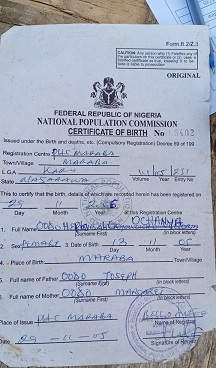 Form B.2/Z.3
CAUTION: Any person who (1) falsifies any
of the particulars on this certificate or (2) uses a
falsified certificate as true, knowing it to be
false is liable to prosecution
ORIGINAL
FEDERAL REPUBLIC OF NIGERIA
NATIONAL POPULATION COMMISSION
CERTIFICATE OF BIRTH No
Issued under the Birth and deaths, etc. (Compulsory Registration) Decree 69 of 199
Registration Centre PHC MARABA
Town/Village MARABA
L.G.A KARU
State NASARAWA
Volume Year Entry No
This to certify that the birth, details of which are recorded herein has been registered on
29 11
day Month Year at this Registration Centre
1. Full Name ODDO OCHANYA
(Surname First) (in block letters)
2. Sex FEMALE 3 Date of Birth 12 11
day Month Year
4. - Place of Birth MARABA
Town/Village
5. Full name of Father ODDO JOSEPH
(Surname First) (in block letters)
6. Full name of Mother ODDO MARGARET
(Surname First) (in block letters)
Place of Issue PHC MARABA
Name of Registrar
Date 29 - 11 - 05
Signature of Registrar